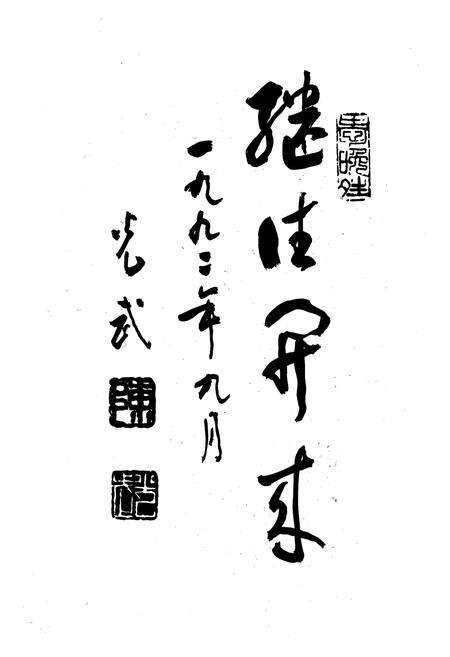 继往开来
一九九二年九月
光武
陈